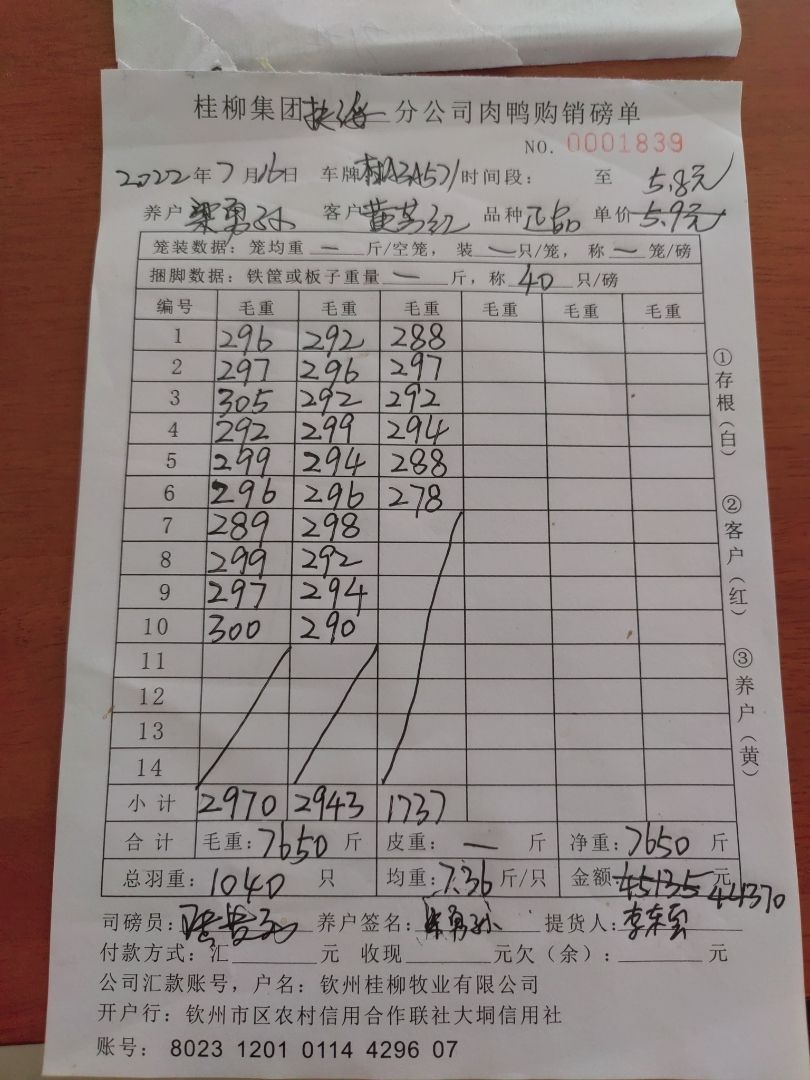 桂柳集团 分公司肉鸭购销磅单
NO. 0001839
2022年7月16日 车牌 时间段： 至 5.8元
养户 梁勇孙 客户 黄其红 品种 正品 单价 5.9元
笼装数据：笼均重 — 斤/空笼，装 — 只/笼，称 — 笼/磅
捆脚数据：铁筐或板子重量 — 斤，称 40 只/磅
编号 毛重 毛重 毛重 毛重 毛重 毛重
1 296 292 288
2 297 296 297
3 305 292 292
4 292 299 294
5 299 294 288
6 296 296 278
7 289 298
8 299 292
9 297 294
10 300 290
11
12
13
14
小计 2970 2943 1737
合计 毛重：7650 斤 皮重：— 斤 净重：7650 斤
总羽重：1040 只 均重：7.36 斤/只 金额：45135 元 44370
司磅员： 养户签名：梁勇孙 提货人：李东
付款方式：汇 元 收现 元欠（余）： 元
公司汇款账号，户名：钦州桂柳牧业有限公司
开户行：钦州市区农村信用合作联社大垌信用社
账号： 8023 1201 0114 4296 07
①存根（白）
②客户（红）
③养户（黄）